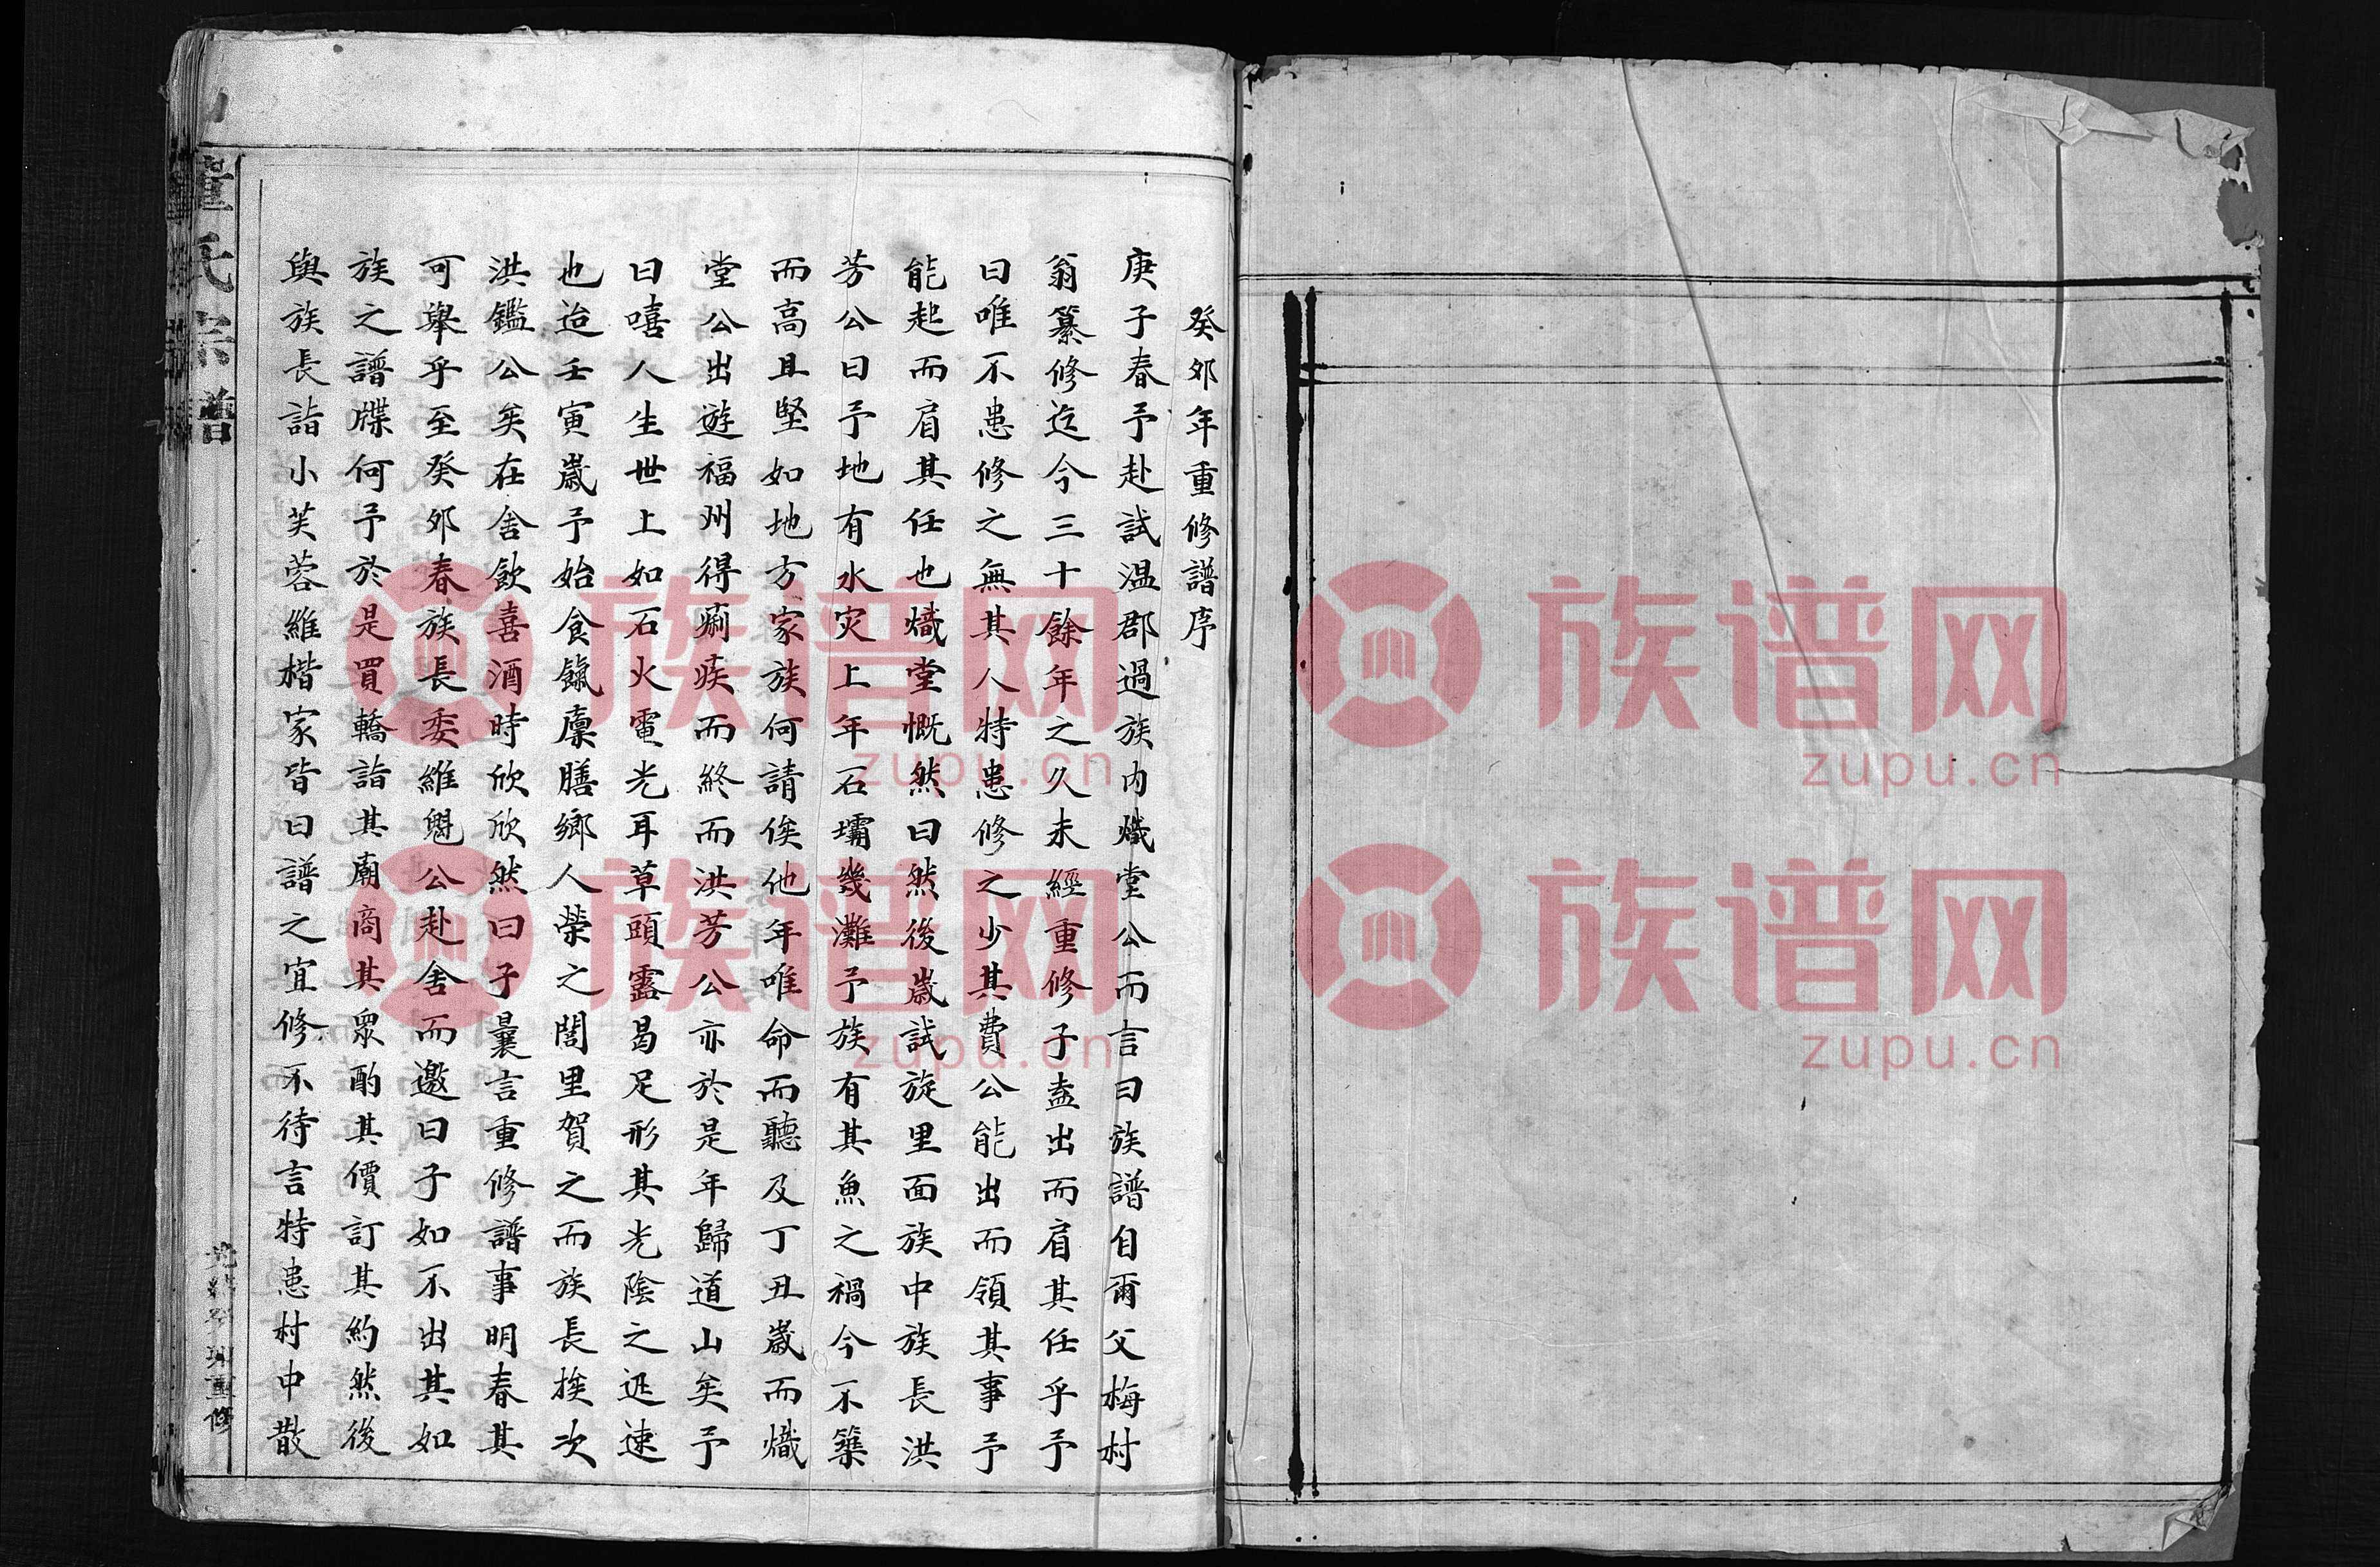 癸夘年重修譜序
庚子春予赴試温郡過族内熾堂公而言曰族譜自爾父梅村
翁纂修迄今三十餘年之久未經重修子盍出而肩其任乎予
曰唯不患修之無其人特患修之少其費公能出而領其事予
能起而肩其任也熾堂慨然曰然後歲試旋里面族中族長洪
芳公曰予地有水灾上年石壩幾灘予族有其魚之禍今不築
而高且堅如地方家族何請俟他年唯命而聽及丁丑歲而熾
堂公出遊福州得痢疾而終而洪芳公亦於是年歸道山矣予
曰嘻人生世上如石火電光耳草頭露曷足形其光陰之迅速
也迨壬寅歲予始食餼廩膳鄉人榮之閭里賀之而族長挨次
洪鑑公矣在舍飲喜酒時欣欣然曰子曩言重修譜事明春其
可舉乎至癸夘春族長委維魁公赴舍而邀曰子如不出其如
族之譜牒何予於是買轎詣其廟商其眾酌其價訂其約然後
與族長詣小芙蓉維楷家皆曰譜之宜修不待言特患村中散
氏宗譜
重修
族谱网
zupu.cn
族谱网
zupu.cn
族谱网
zupu.cn
族谱网
zupu.cn